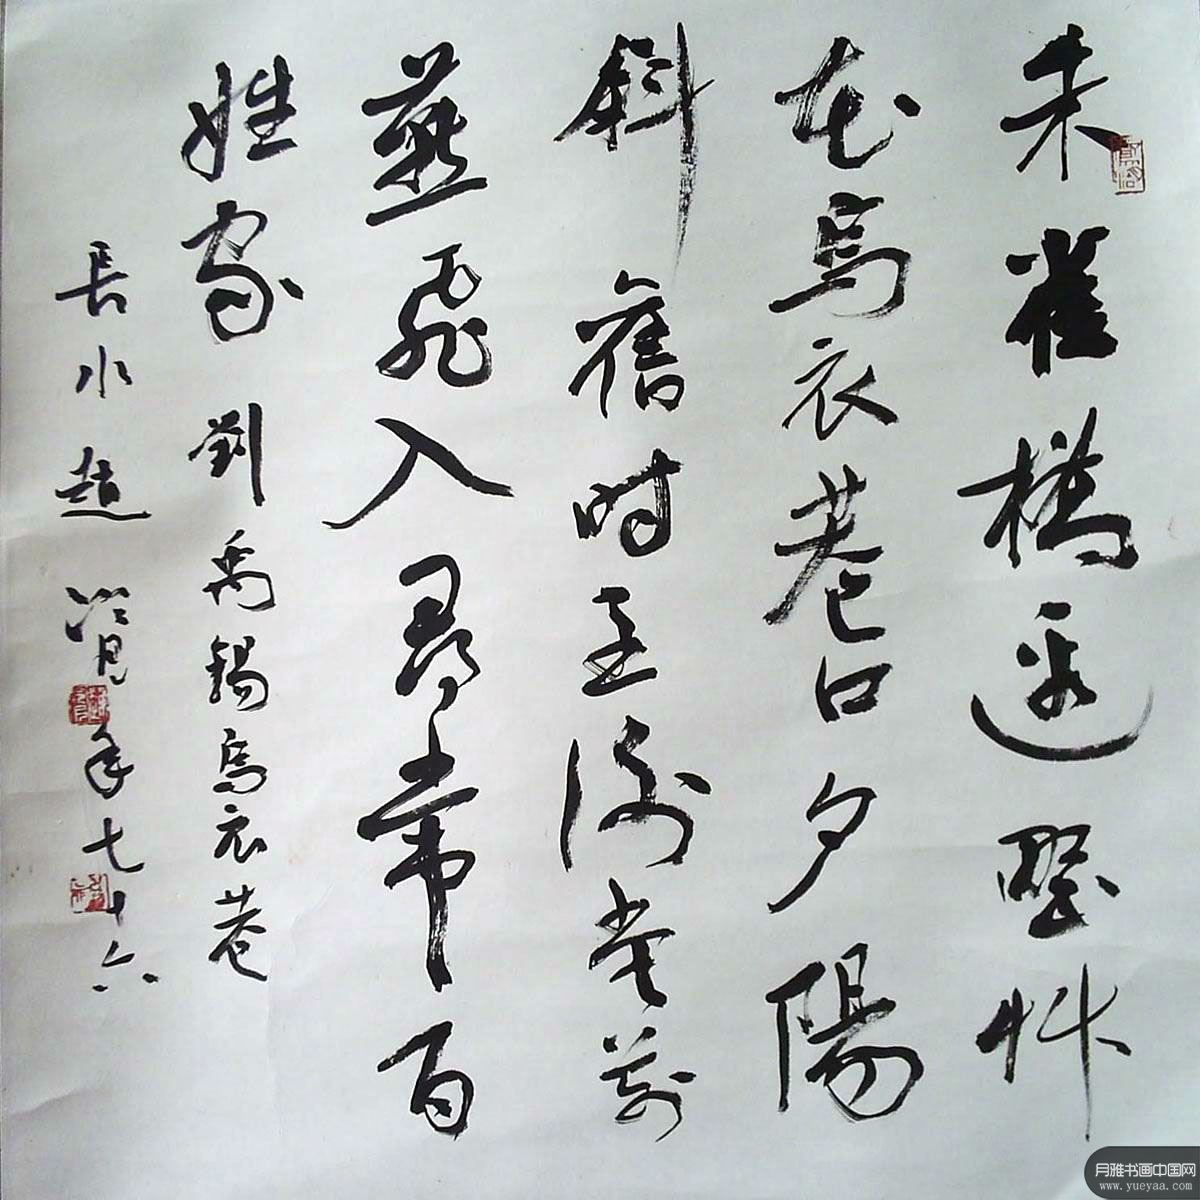 朱雀橋邊埜艸
花烏衣巷口夕陽
斜舊時王谢堂前
燕飛入尋常百
姓家 劉禹錫烏衣巷
長水趙冷月年七十六
月雅书画中国网
www.yueyaa.com